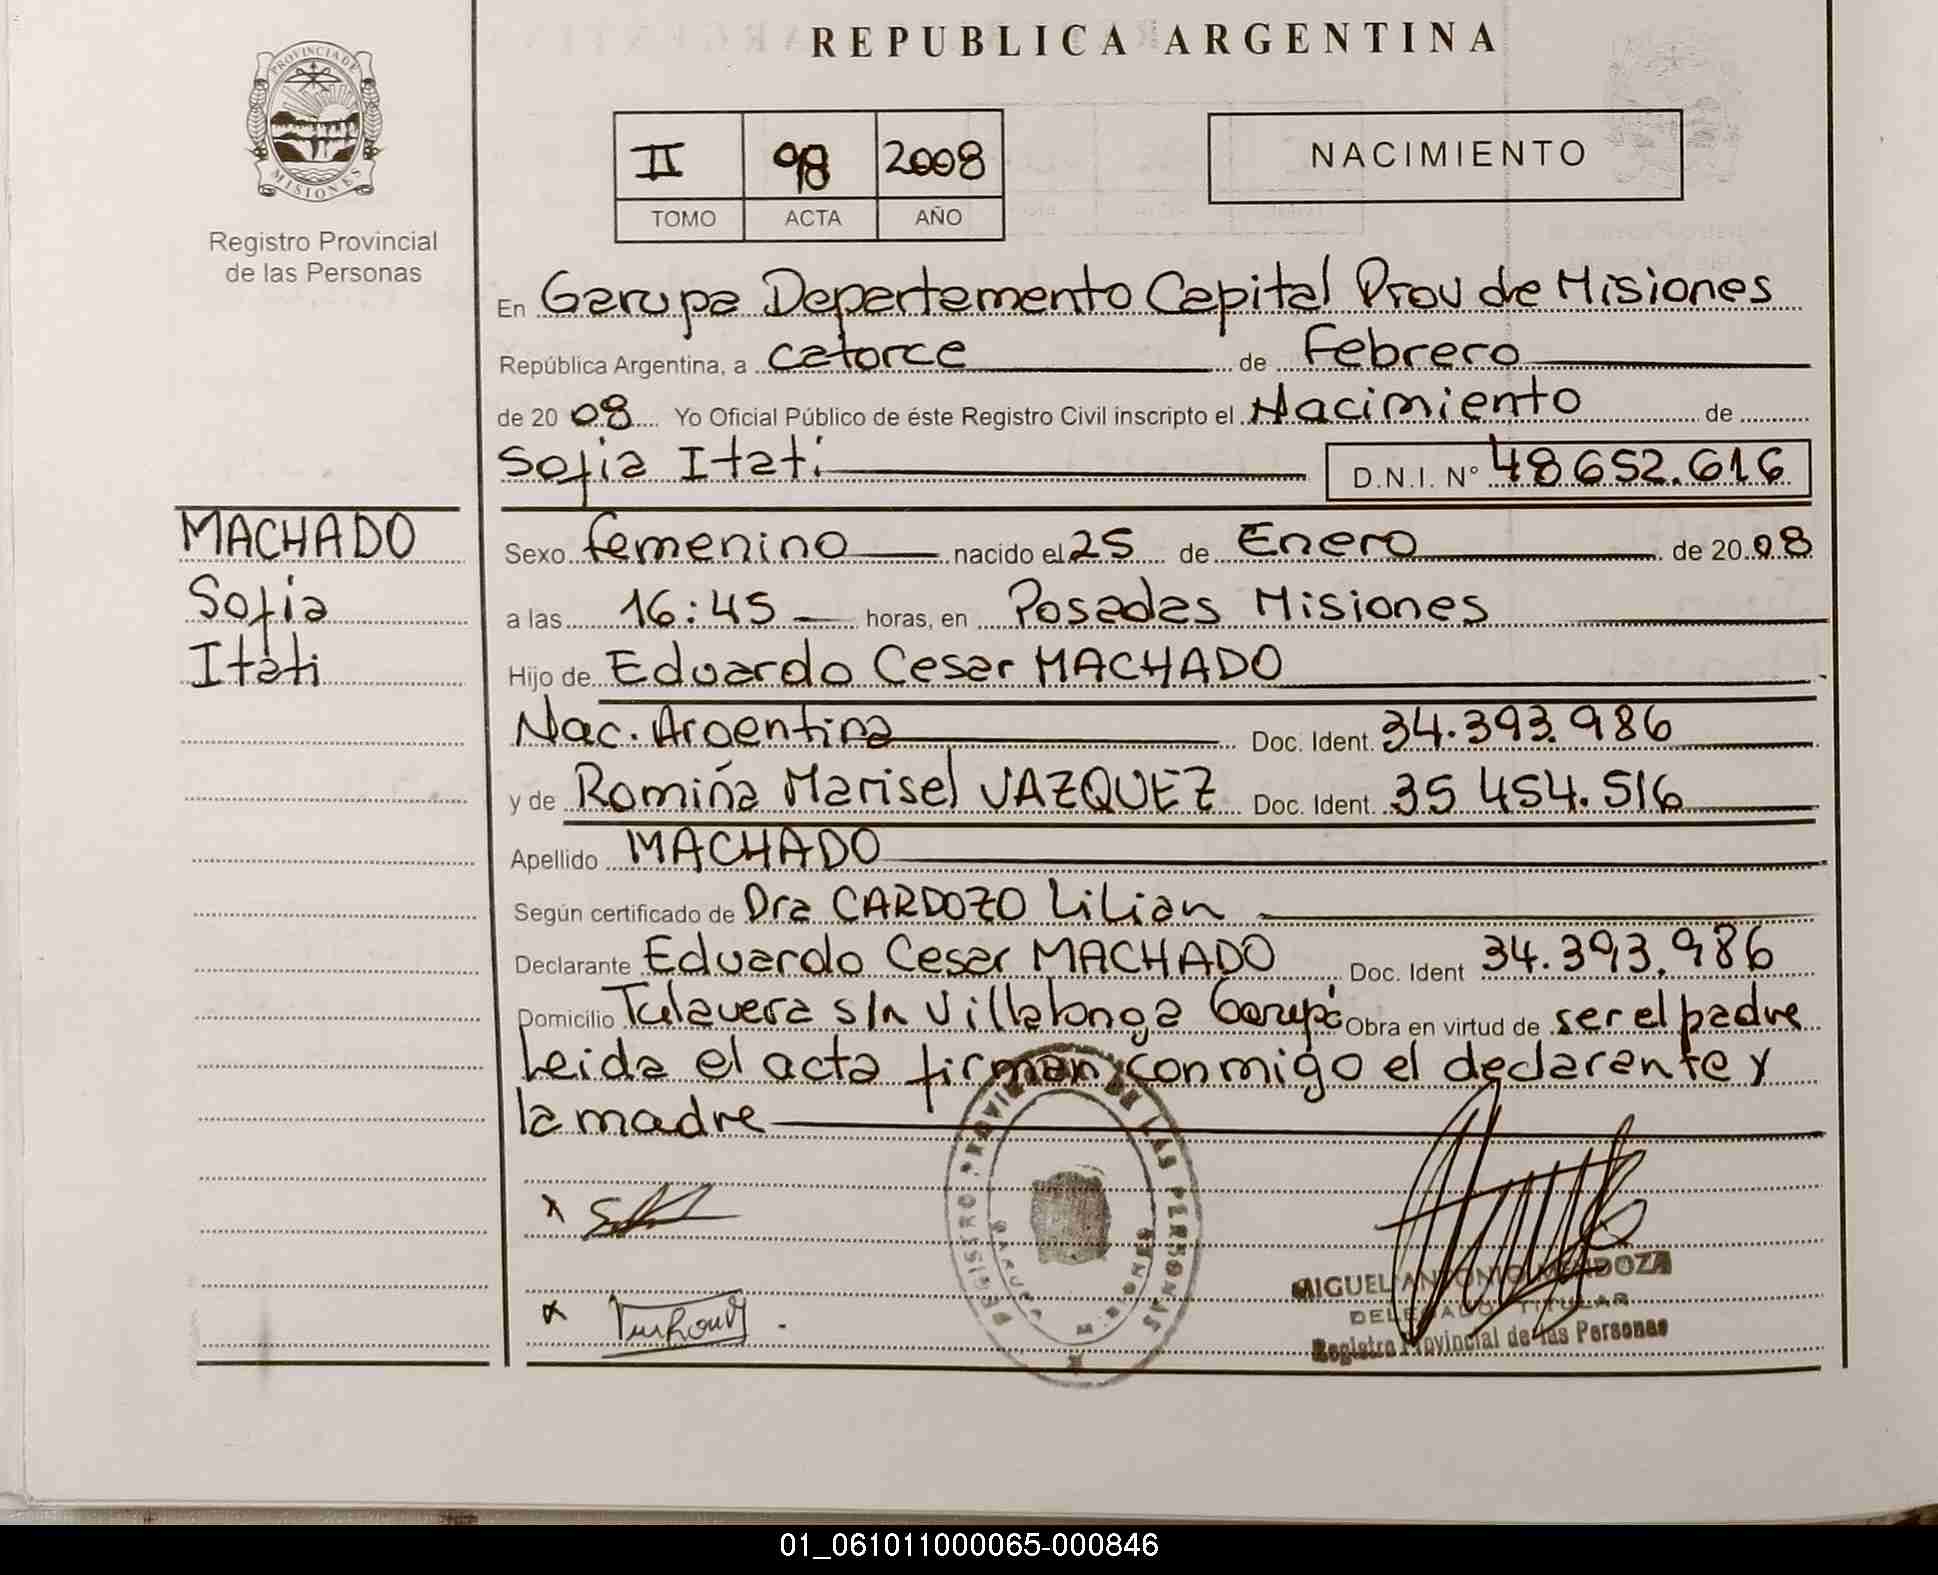 REPUBLICA ARGENTINA
PROVINCIA DE
MISIONES
Registro Provincial
de las Personas
II 98 2008
TOMO ACTA AÑO
NACIMIENTO
En Garupa Departamento Capital Prov de Misiones
República Argentina, a catorce de Febrero
de 20 08 Yo Oficial Público de éste Registro Civil inscripto el Nacimiento de
Sofia Itati D.N.I. N° 48652.616
MACHADO
Sofia
Itati
Sexo femenino nacido el 25 de Enero de 20 08
a las 16:45 horas, en Posadas Misiones
Hijo de Eduardo Cesar MACHADO
Nac. Argentina Doc. Ident. 34.393.986
y de Romina Marisel VAZQUEZ Doc. Ident. 35 454.516
Apellido MACHADO
Según certificado de Dra CARDOZO Lilian
Declarante Eduardo Cesar MACHADO Doc. Ident 34.393.986
Domicilio Talavera s/n Villalonga Garupá Obra en virtud de ser el padre
Leida el acta firman conmigo el declarante y
la madre
REGISTRO PROVINCIAL DE LAS PERSONAS
MIGUEL ANTONIO MENDOZA
DELEGADO TITULAR
Registro Provincial de las Personas
01_061011000065-000846